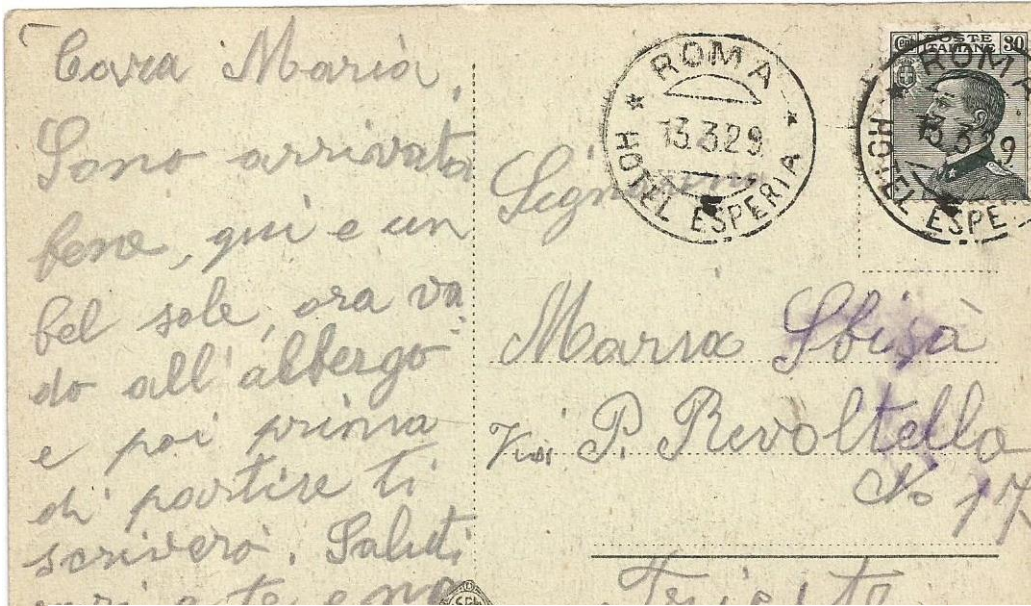 Cara Maria,
Sono arrivata
bene, qui e un
bel sole, ora va
do all'albergo
e poi prima
di partire ti
scriverò. Saluti
a te e
ROMA
13.3.29
HOTEL ESPERIA
POSTE
ITALIANE 30
ROMA
13.3.29
HOTEL ESPE
Signorina
Maria Sbisà
Via P. Revoltella
No 17
Trieste